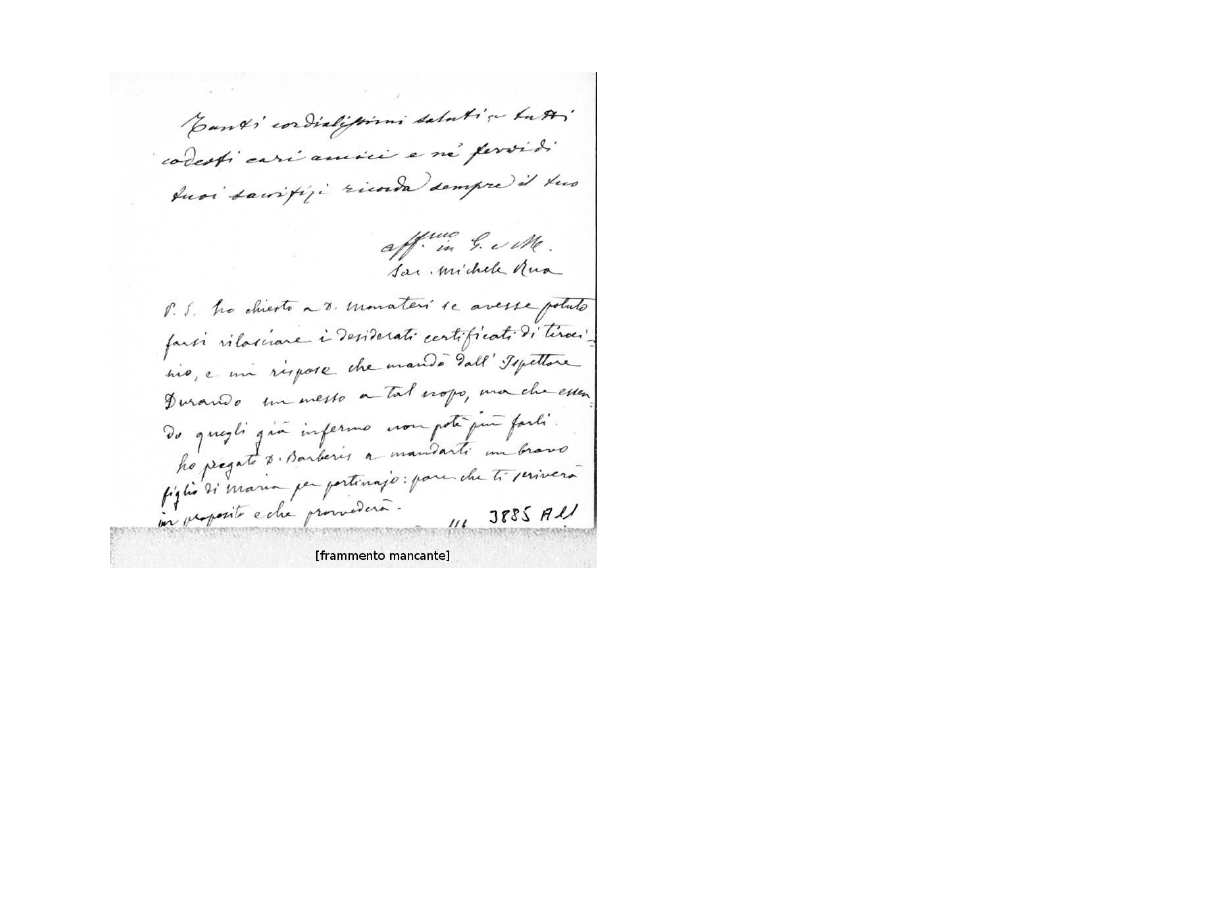 Tanti cordialissimi saluti a tutti
codesti cari amici e ne' fervidi
tuoi sacrifizi ricorda sempre il tuo
aff.mo in G. e M.
Sac. Michele Rua
P. S. ho chiesto a D. Monateri se avesse potuto
farsi rilasciare i desiderati certificati di tiroci=
nio, e mi rispose che mandò dall' Ispettore
Durando un messo a tal uopo, ma che essen=
do quegli già infermo non potè più farli.
ho pregato D. Barberis a mandarti un bravo
figlio di Maria per portinajo: pare che ti scriverà
in proposito e che provvederà.
3885
[frammento mancante]